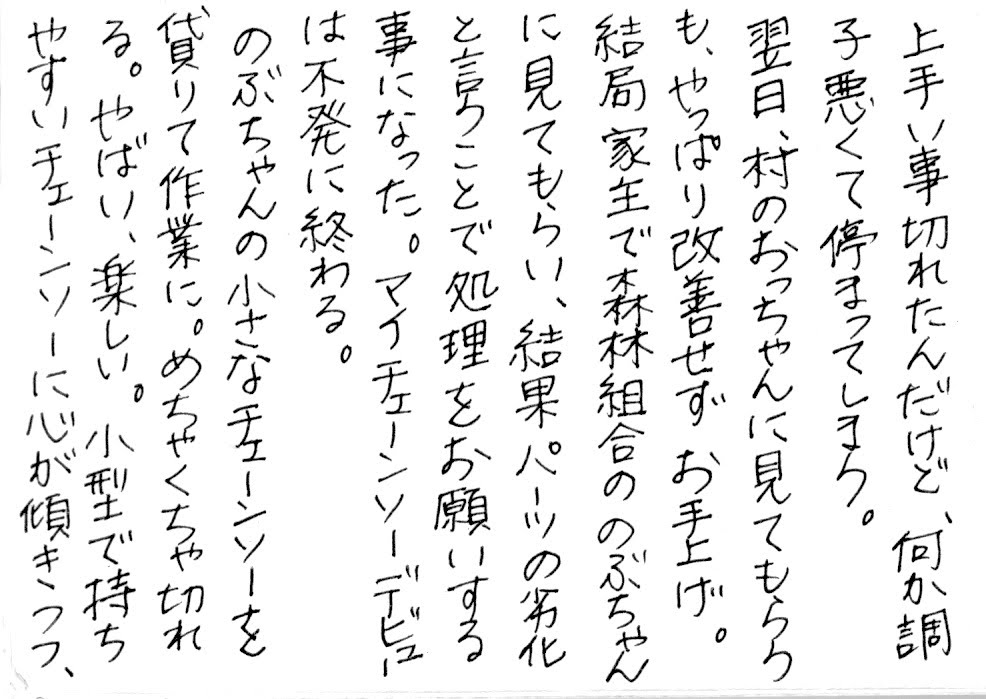 上手い事切れたんだけど、何か調
子悪くて停まってしまう。
翌日、村のおっちゃんに見てもらう
も、やっぱり改善せず お手上げ。
結局 家主で森林組合の のぶちゃん
に見てもらい、結果パーツの劣化
と言うことで処理をお願いする
事になった。マイチェーンソーデビュー
は不発に終わる。
のぶちゃんの小さなチェーンソーを
貸りて作業に。めちゃくちゃ切れ
る。やばい、楽しい。小型で持ち
やすいチェーンソーに心が傾きつつ、